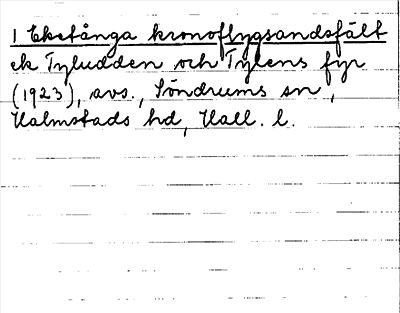 1 Eketånga kronoflygsandsfält
ek Tyludden och Tylens fyr
(1923), avs., Söndrums sn,
Halmstads hd, Hall. l.